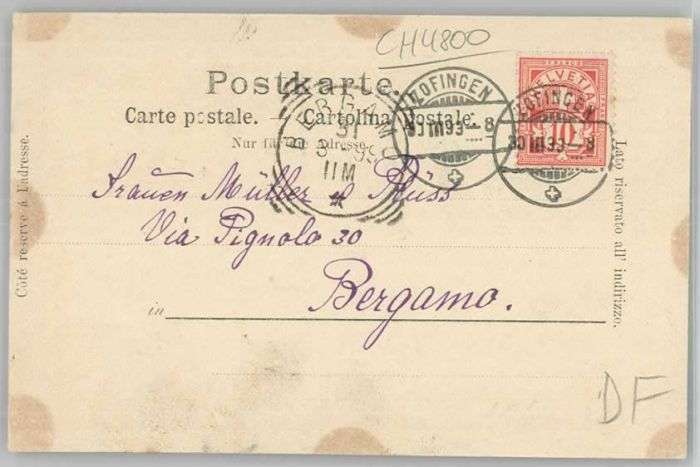 CH4800
Postkarte.
Carte postale. — Cartolina postale.
Nur für die Adresse.
Côté réservé à l'adresse.
Lato riservato all' indirizzo.
BERGAMO
31
3-99
11M
ZOFINGEN
30 III 99 – 8
ZOFINGEN
30 III 99 – 8
FRANCO
HELVETIA
10
Frauen Müller & Rüss
Via Pignolo 30
in Bergamo.
DF